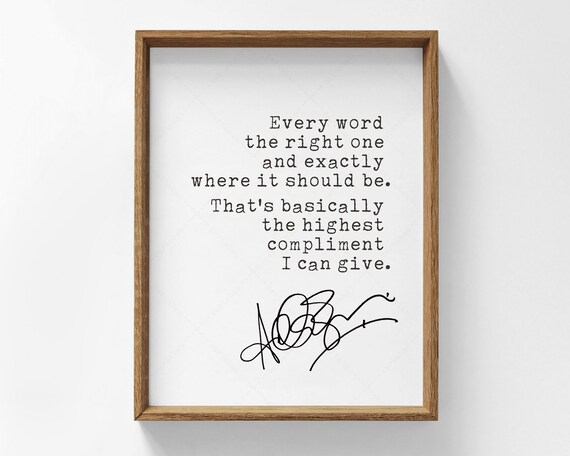 Every word
the right one
and exactly
where it should be.
That's basically
the highest
compliment
I can give.